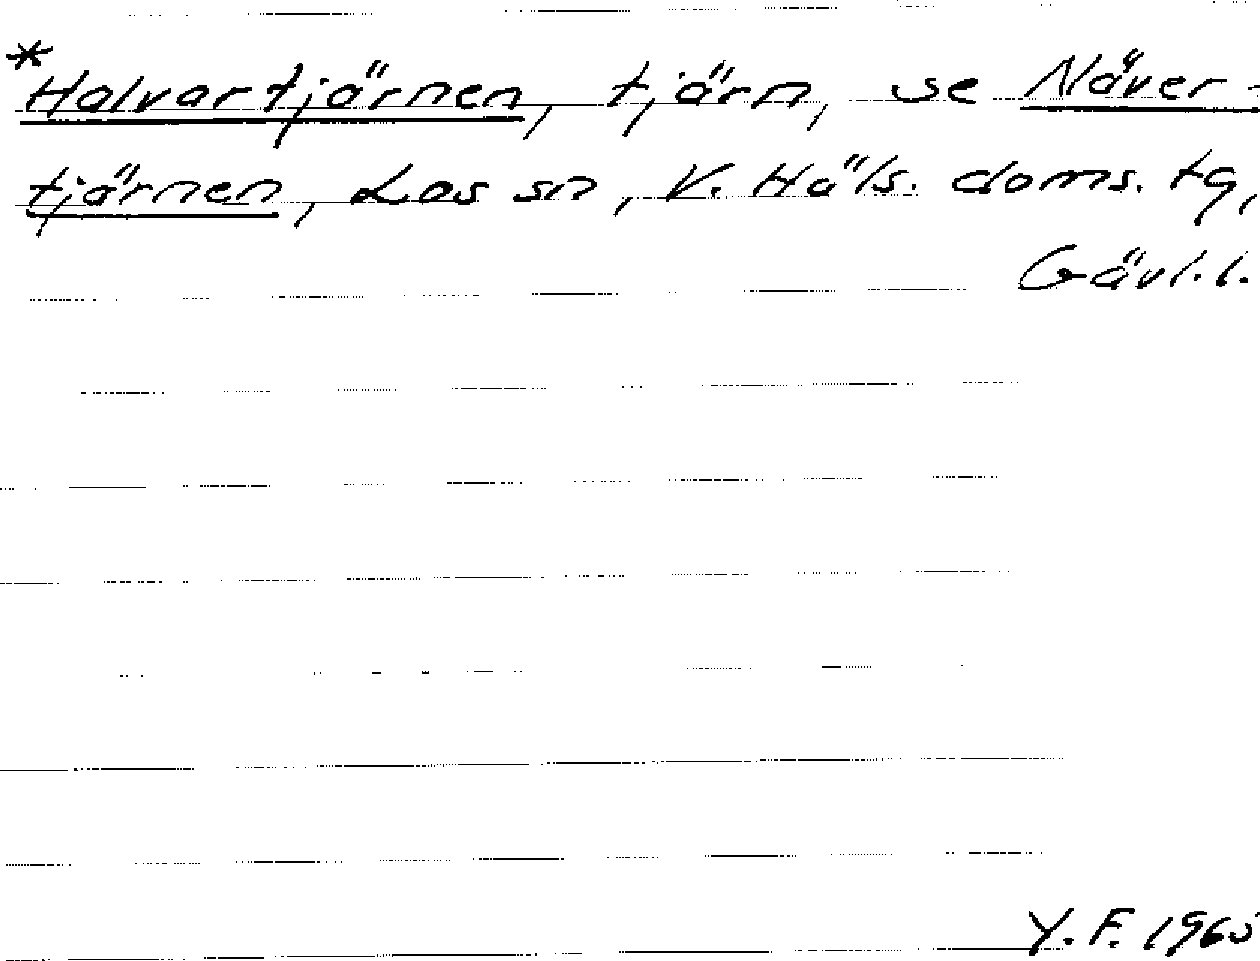 *
Halvartjärnen, tjärn, se Näver-
tjärnen, Los sn, V. Häls. doms. tg,
Gävl. l.
Y. F. 1965